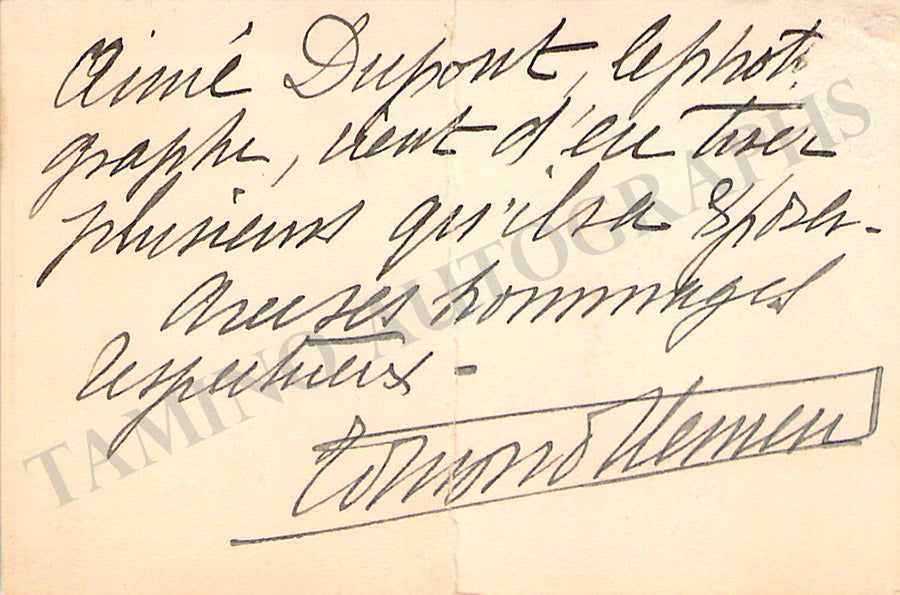 Aimé Dupont, le photo
graphe, vient d'en tirer
plusieurs qu'il va exposer -
Avec ses hommages
respectueux -
Edmond Clément
TAMINO AUTOGRAPHS